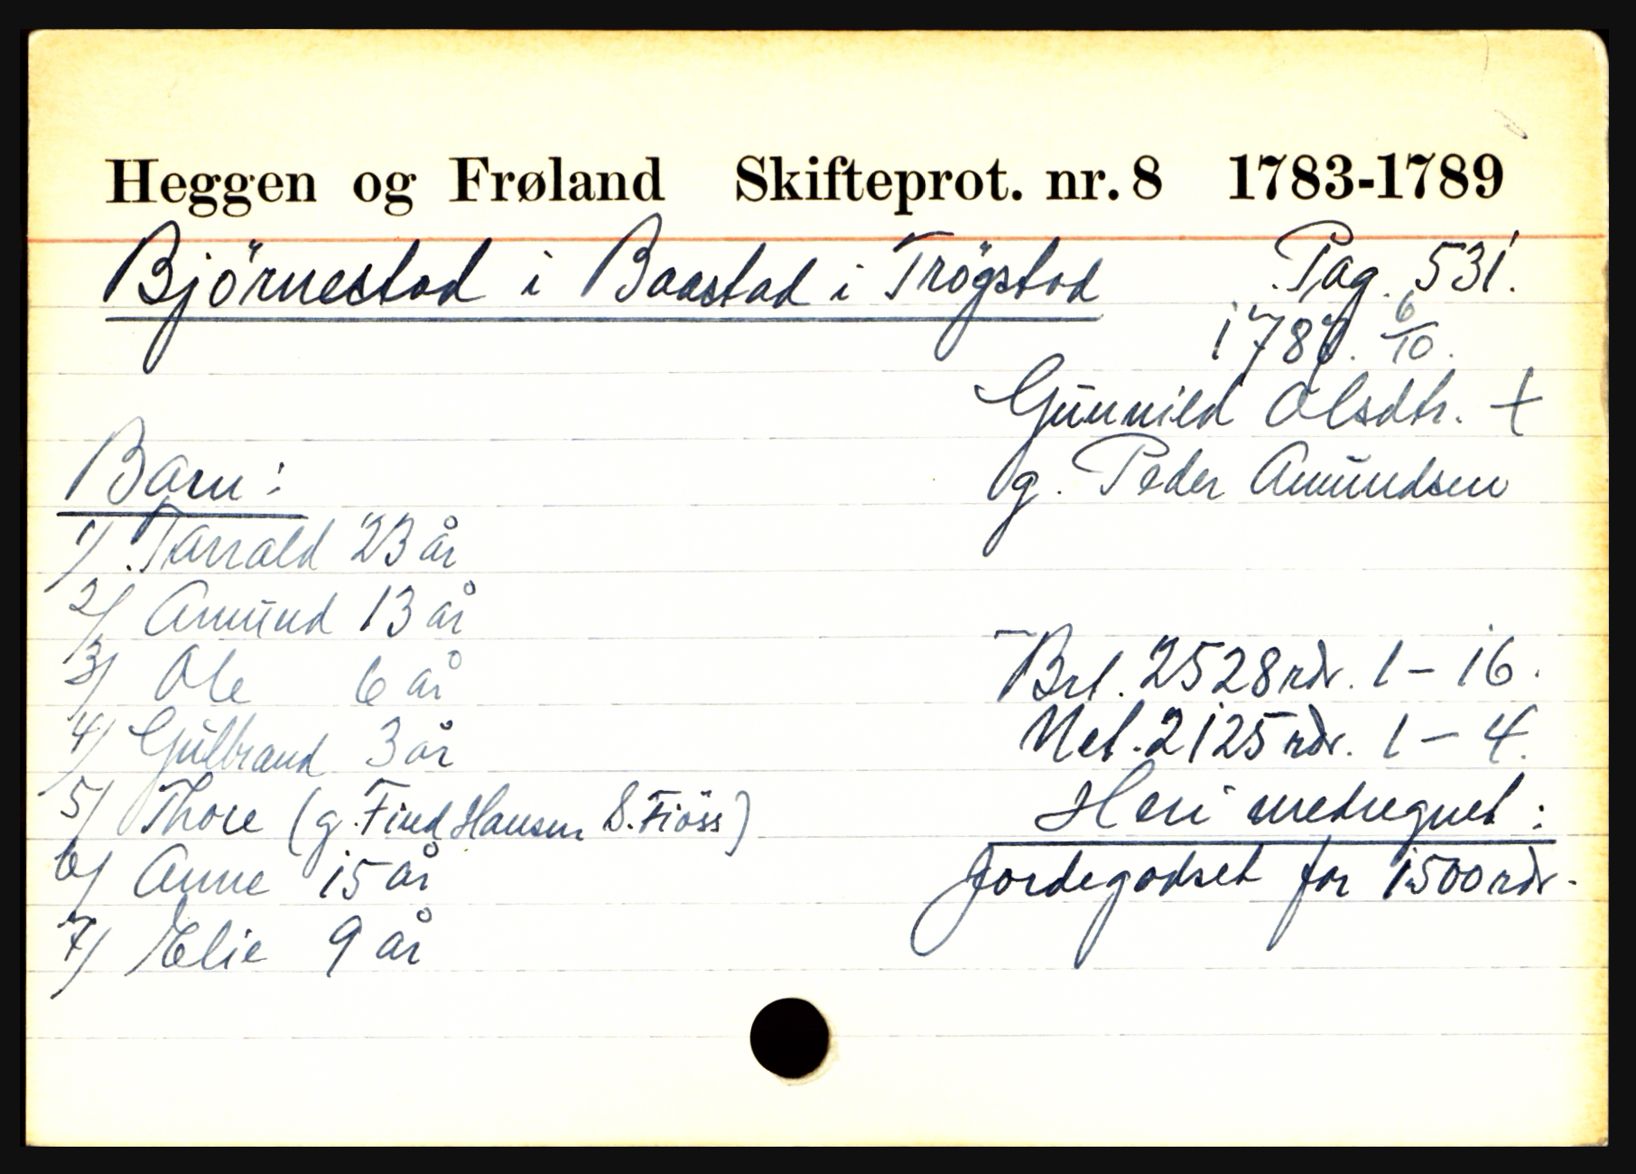 Heggen og Frøland Skifteprot. nr. 8 1783-1789
Björnestad i Baastad i Trögstad Pag. 531.
6/10.
Gunnild Olsdtr. +
g. Peder Amundsen
Barn:
1/ Tarrald 23 år
2/ Amund 13 år
3/ Ole 6 år
4/ Gulbrand 3 år
5/ Thore (g. Find Hansen S. Fiöss)
6/ Anne 15 år
7/ Elie 9 år
Brt. 2528 rdr. 1 - 16.
Net. 2125 rdr. 1 - 4.
Heri medregnet:
Jordegodset for 1500 rdr.